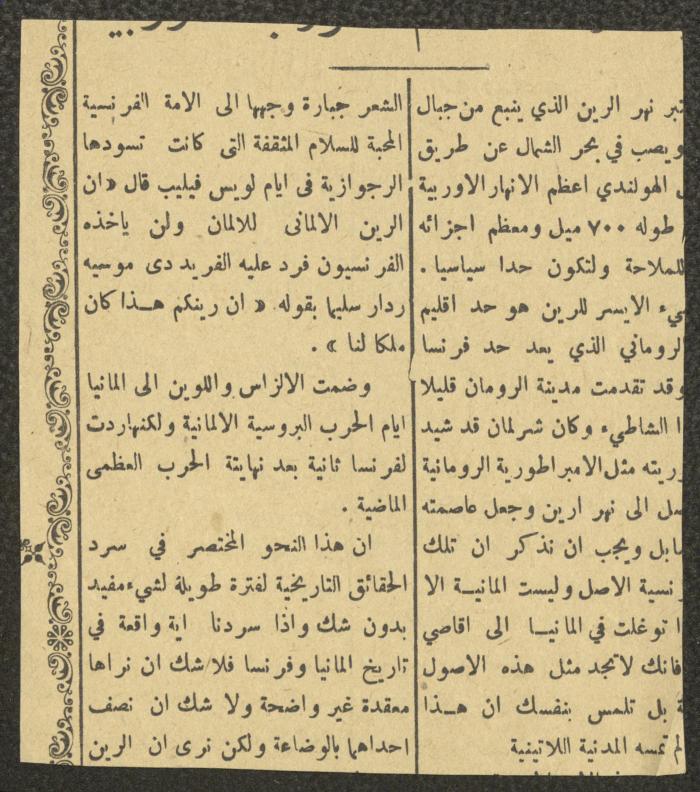 نهر الرين الذي ينبع من جبال
ويصب في بحر الشمال عن طريق
الهولندي اعظم الانهار الاوربية
طوله ٧٠٠ ميل ومعظم اجزائه
للملاحة ولتكون حدا سياسيا .
الايسر للرين هو حد اقليم
الروماني الذي يعد حد فرنسا
وقد تقدمت مدينة الرومان قليلا
الشاطيء وكان شرلمان قد شيد
مثل الامبراطورية الرومانية
الى نهر ارين وجعل عاصمته
ويجب ان نذكر ان تلك
الاصل وليست المانيـة الا
توغلت في المانيـا الى اقاصي
فانك لاتجد مثل هذه الاصول
بل تلمس بنفسك ان هـذا
تمسه المدنية اللاتينية
الشعر جبارة وجهها الى الامة الفرنسية
المحبة للسلام المثقفة التى كانت تسودها
الرجوازية فى ايام لويس فيليب قال « ان
الرين الالمانى للالمان ولن ياخذه
الفرنسيون فرد عليه الفريد دى موسيه
ردار سليها بقوله « ان رينكم هـذا كان
ملكا لنا » .
وضمت الالزاس واللوين الى المانيا
ايام الحرب البروسية الالمانية ولكنهاردت
لفرنسا ثانية بعد نهايتة الحرب العظمى
الماضية .
ان هذا النحو المختصر في سرد
الحقائق التاريخية لفترة طويلة لشيء مفيد
بدون شك واذا سردنا اية واقعة في
تاريخ المانيا وفرنسا فلا شك ان نراها
معقدة غير واضحة ولا شك ان نصف
احداهما بالوضاعة ولكن نرى ان الرين